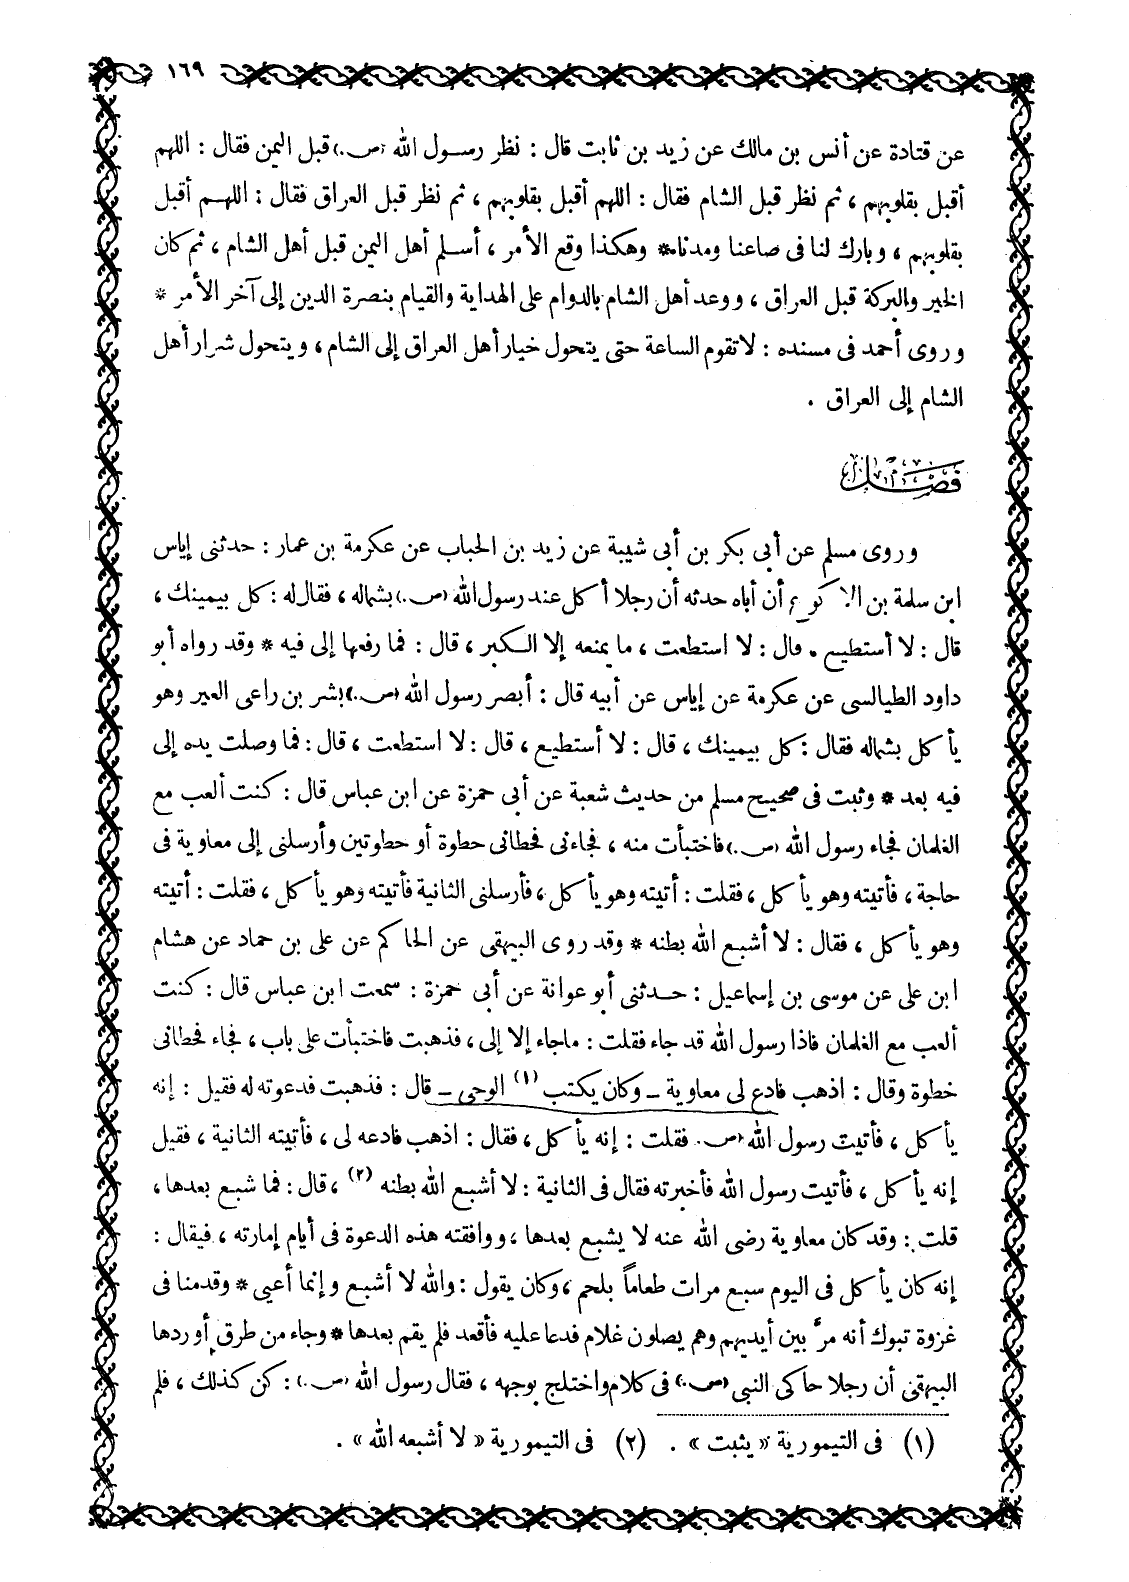 ١٦٩
عن قتادة عن أنس بن مالك عن زيد بن ثابت قال : نظر رسول الله (ص.) قبل اليمن فقال : اللهم
أقبل بقلوبهم ، ثم نظر قبل الشام فقال : اللهم أقبل بقلوبهم ، ثم نظر قبل العراق فقال : اللهم أقبل
بقلوبهم ، وبارك لنا فى صاعنا ومدنا * وهكذا وقع الأمر ، أسلم أهل اليمن قبل أهل الشام ، ثم كان
الخير والبركة قبل العراق ، ووعد أهل الشام بالدوام على الهداية والقيام بنصرة الدين إلى آخر الأمر *
وروى أحمد فى مسنده : لا تقوم الساعة حتى يتحول خيار أهل العراق إلى الشام ، ويتحول شرار أهل
الشام إلى العراق .
فصل
وروى مسلم عن أبى بكر بن أبى شيبة عن زيد بن الحباب عن عكرمة بن عمار : حدثنى إياس
ابن سلمة بن الأكوع أن أباه حدثه أن رجلا أكل عند رسول الله (ص.) بشماله ، فقال له : كل بيمينك ،
قال : لا أستطيع . قال : لا استطعت ، ما يمنعه إلا الكبر ، قال : فما رفعها إلى فيه * وقد رواه أبو
داود الطيالسى عن عكرمة عن إياس عن أبيه قال : أبصر رسول الله (ص.) بشر بن راعى العير وهو
يأكل بشماله فقال : كل بيمينك ، قال : لا أستطيع ، قال : لا استطعت ، قال : فما وصلت يده إلى
فيه بعد * وثبت فى صحيح مسلم من حديث شعبة عن أبى حمزة عن ابن عباس قال : كنت ألعب مع
الغلمان فجاء رسول الله (ص.) فاختبأت منه ، فجاءنى فحطانى حطوة أو حطوتين وأرسلنى إلى معاوية فى
حاجة ، فأتيته وهو يأكل ، فقلت : أتيته وهو يأكل ، فأرسلنى الثانية فأتيته وهو يأكل ، فقلت : أتيته
وهو يأكل ، فقال : لا أشبع الله بطنه * وقد روى البيهقى عن الحاكم عن على بن حماد عن هشام
ابن على عن موسى بن إسماعيل : حدثنى أبو عوانة عن أبى حمزة : سمعت ابن عباس قال : كنت
ألعب مع الغلمان فاذا رسول الله قد جاء فقلت : ما جاء إلا إلى ، فذهبت فاختبأت على باب ، فجاء فحطانى
خطوة وقال : اذهب فادع لى معاوية - وكان يكتب (١) الوحى - قال : فذهبت فدعوته له فقيل : إنه
يأكل ، فأتيت رسول الله (ص.) فقلت : إنه يأكل ، فقال : اذهب فادعه لى ، فأتيته الثانية ، فقيل
إنه يأكل ، فأتيت رسول الله فأخبرته فقال فى الثانية : لا أشبع الله بطنه (٢) ، قال : فما شبع بعدها ،
قلت : وقد كان معاوية رضى الله عنه لا يشبع بعدها ، ووافقته هذه الدعوة فى أيام إمارته ، فيقال :
إنه كان يأكل فى اليوم سبع مرات طعاماً بلحم ، وكان يقول : والله لا أشبع وإنما أعيى * وقدمنا فى
غزوة تبوك أنه مرَّ بين أيديهم وهم يصلون غلام فدعا عليه فأقعد فلم يقم بعدها * وجاء من طرق أوردها
البيهقى أن رجلا حاكى النبى (ص.) فى كلام واختلج بوجهه ، فقال رسول الله (ص.) : كن كذلك ، فلم
(١) فى التيمورية « يثبت » . (٢) فى التيمورية « لا أشبعه الله » .